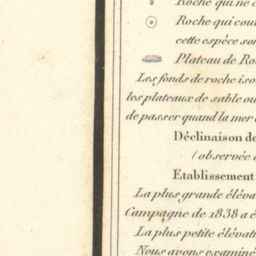 Roche qui ne
Roche qui cou
cette espèce so
Plateau de Ro
Les fonds de roche iso
les plateaux de sable ou
de passer quand la mer
Déclinaison de
(observée
Etablissement
La plus grande éléva
Campagne de 1838 a é
La plus petite élévat
Nous avons examiné